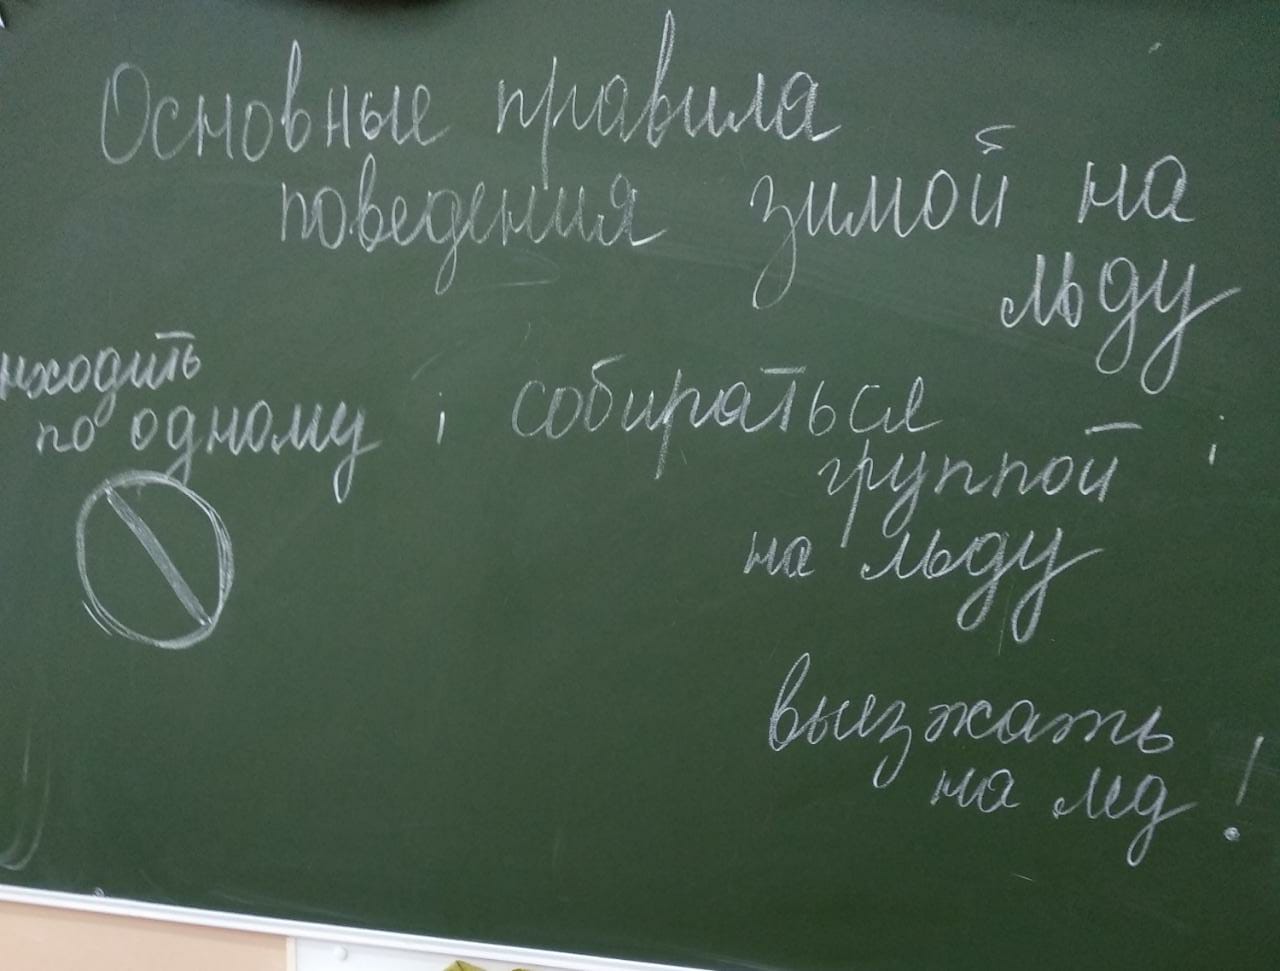 Основные правила
поведения зимой на
льду
ыходить
по одному ; собираться
группой ;
на льду
выезжать
на лед !